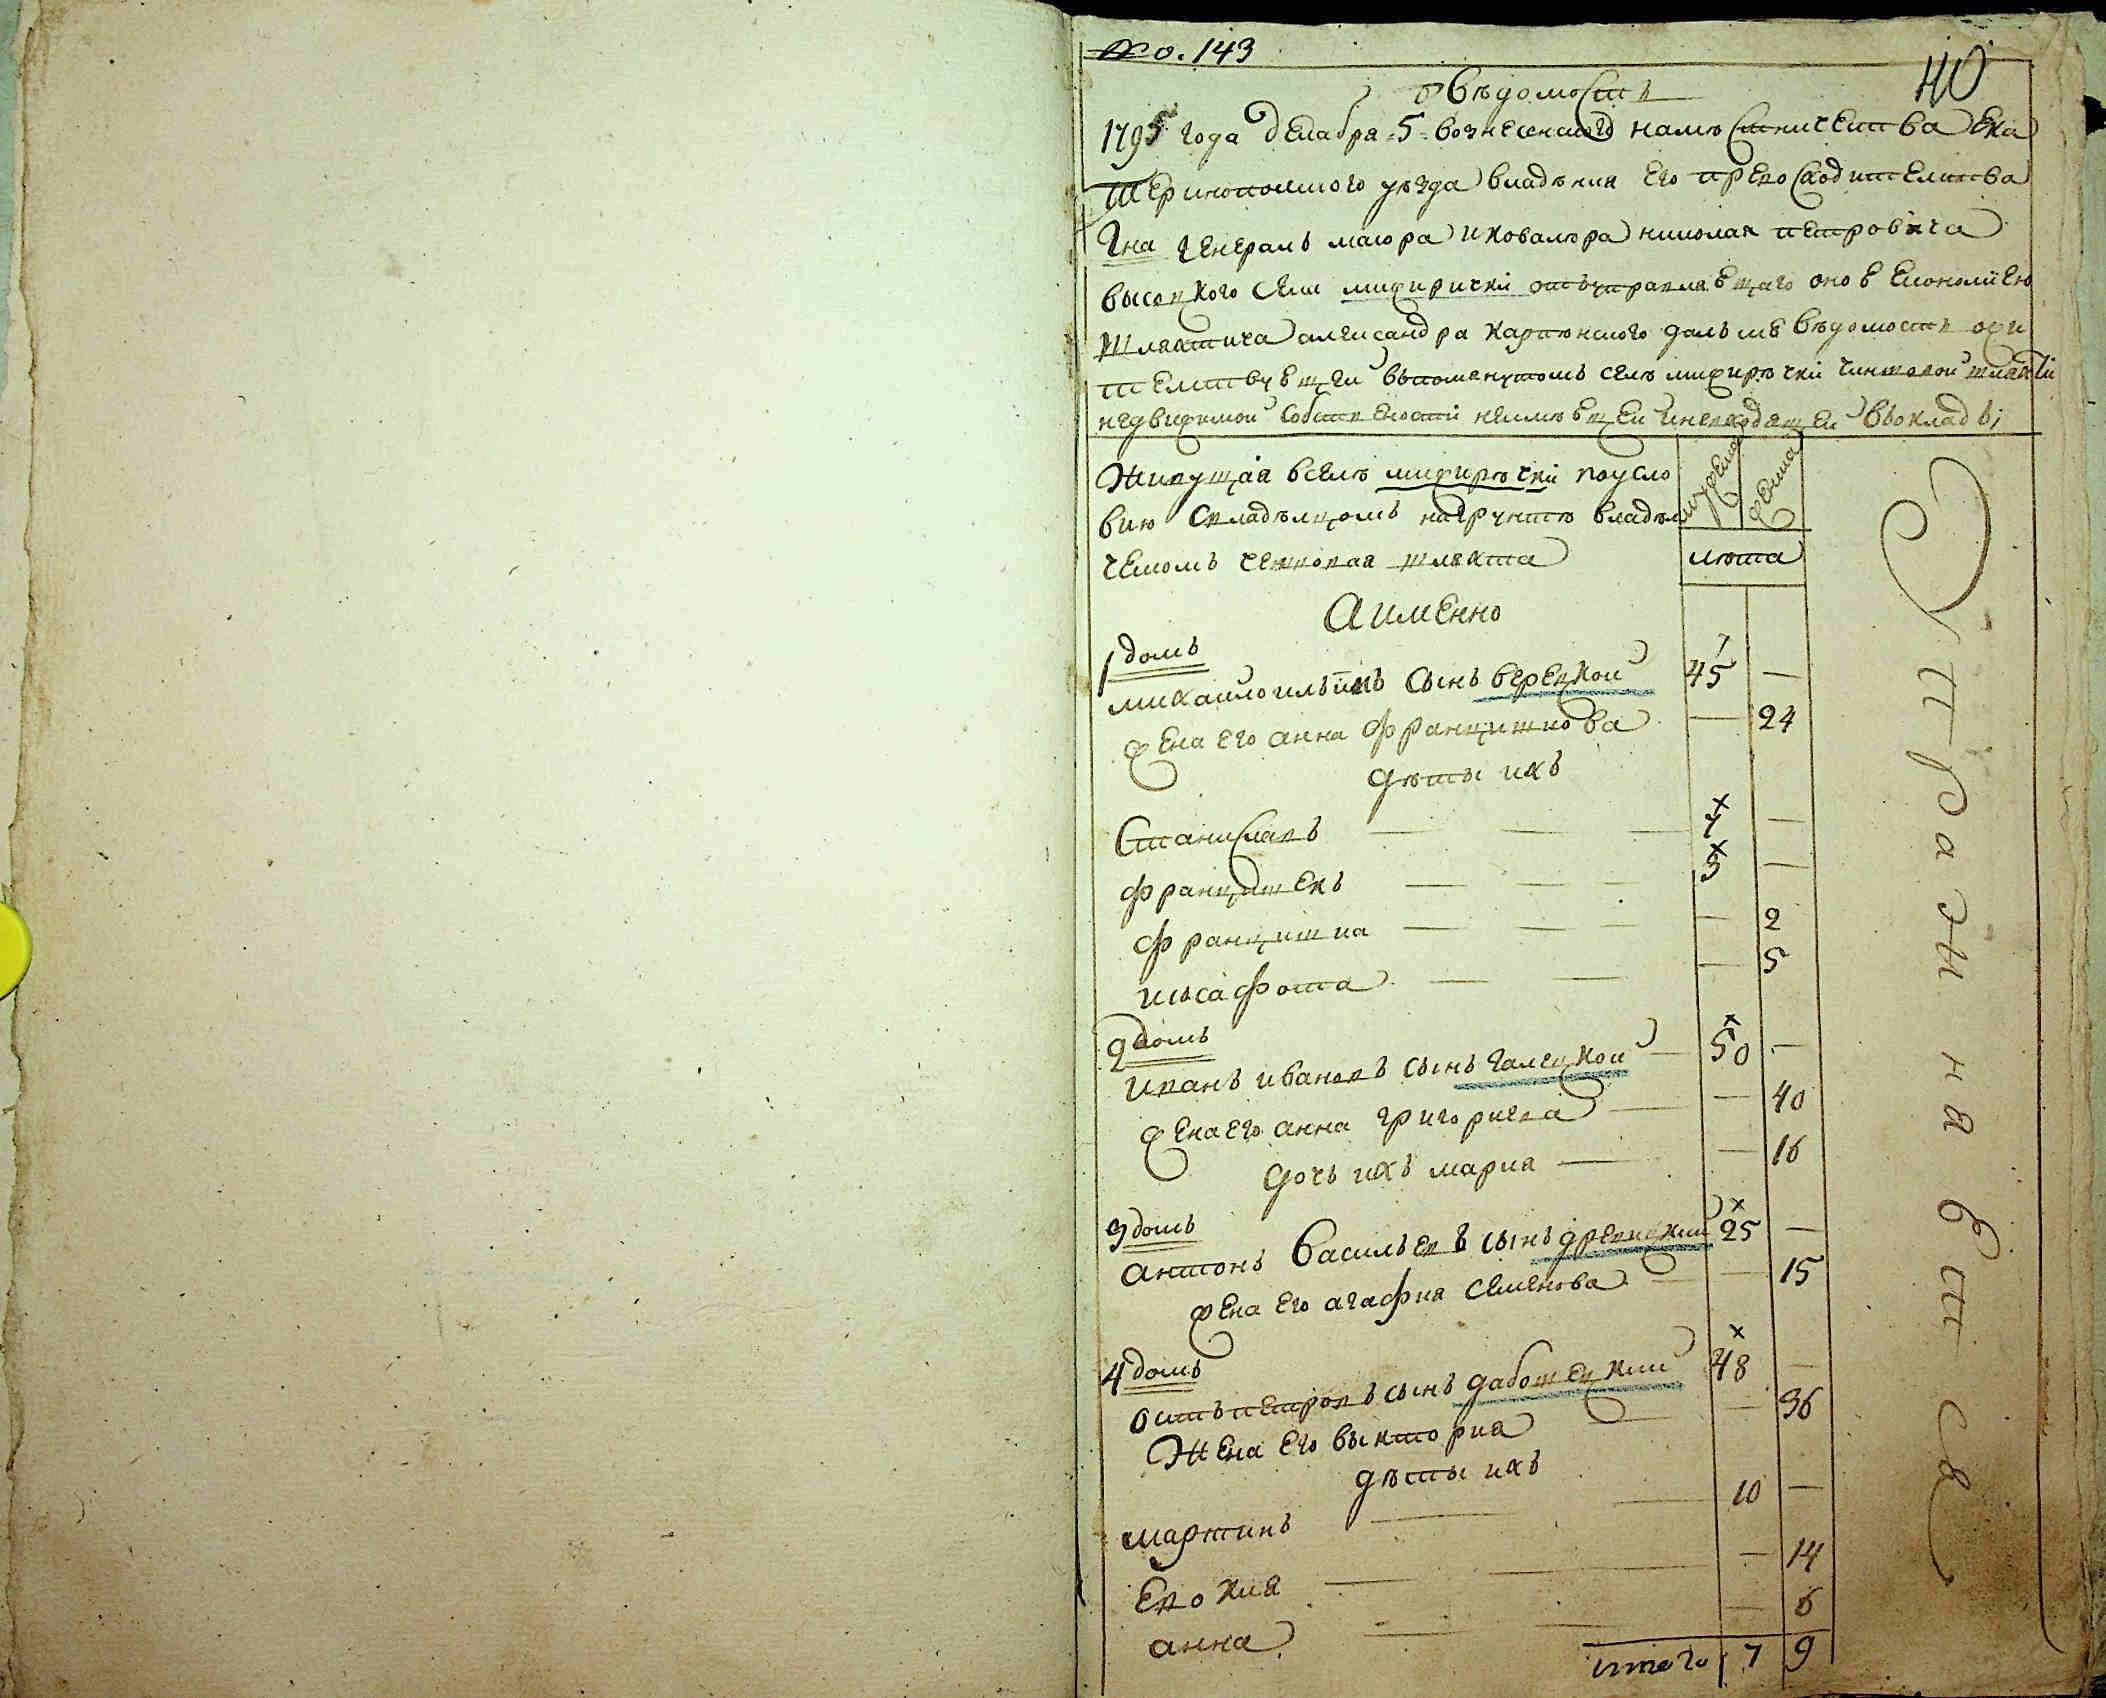 No. 143
40
Вѣдомость
1795 года декабря 5 вознесенского намѣстничества Ека
теринопольского уѣзда владѣния Его превосходителства
Гна генералъ маиора и ковалѣра николая петровича
высоцкого села мижирички отъ управляещаго оное економиею
шляхтича александра карпюнского даль мѣ вѣдомость ожи
телствуещеи въпомянутомъ селѣ мижирѣчки чиншовои шляхти
недвижимои собствености неимѣещеи и невходящеи въокладъ;
Живущая вселѣ мижирѣчки поусло
вию Свладѣлцомъ на грунтѣ владѣл
ческомъ чиншовая шляхта
мужеска
женска
лѣта
А именно
1 домъ
михаило ильинъ сынъ верецкои 45 —
жена его анна францишкова — 24
дѣты ихъ
Станиславъ — — — 7 —
францишекъ — — — 3 —
францишка — — — — 2
иосафота — — — 5
2 домъ
иванъ ивановъ сынъ галецкои — 50 —
жена его анна григориева — — 40
дочь ихъ мария — — 16
3 домъ
антонъ васильевъ сынъ древецкии 25 —
жена его агафия семенова — — 15
4 домъ
осипъ петровъ сынъ дабошецкии 48 —
жена его выктория — — 36
дѣты ихъ
мартинъ — — 10 —
евокия — — — 14
анна — — — 6
итого 7 9
Справки навести